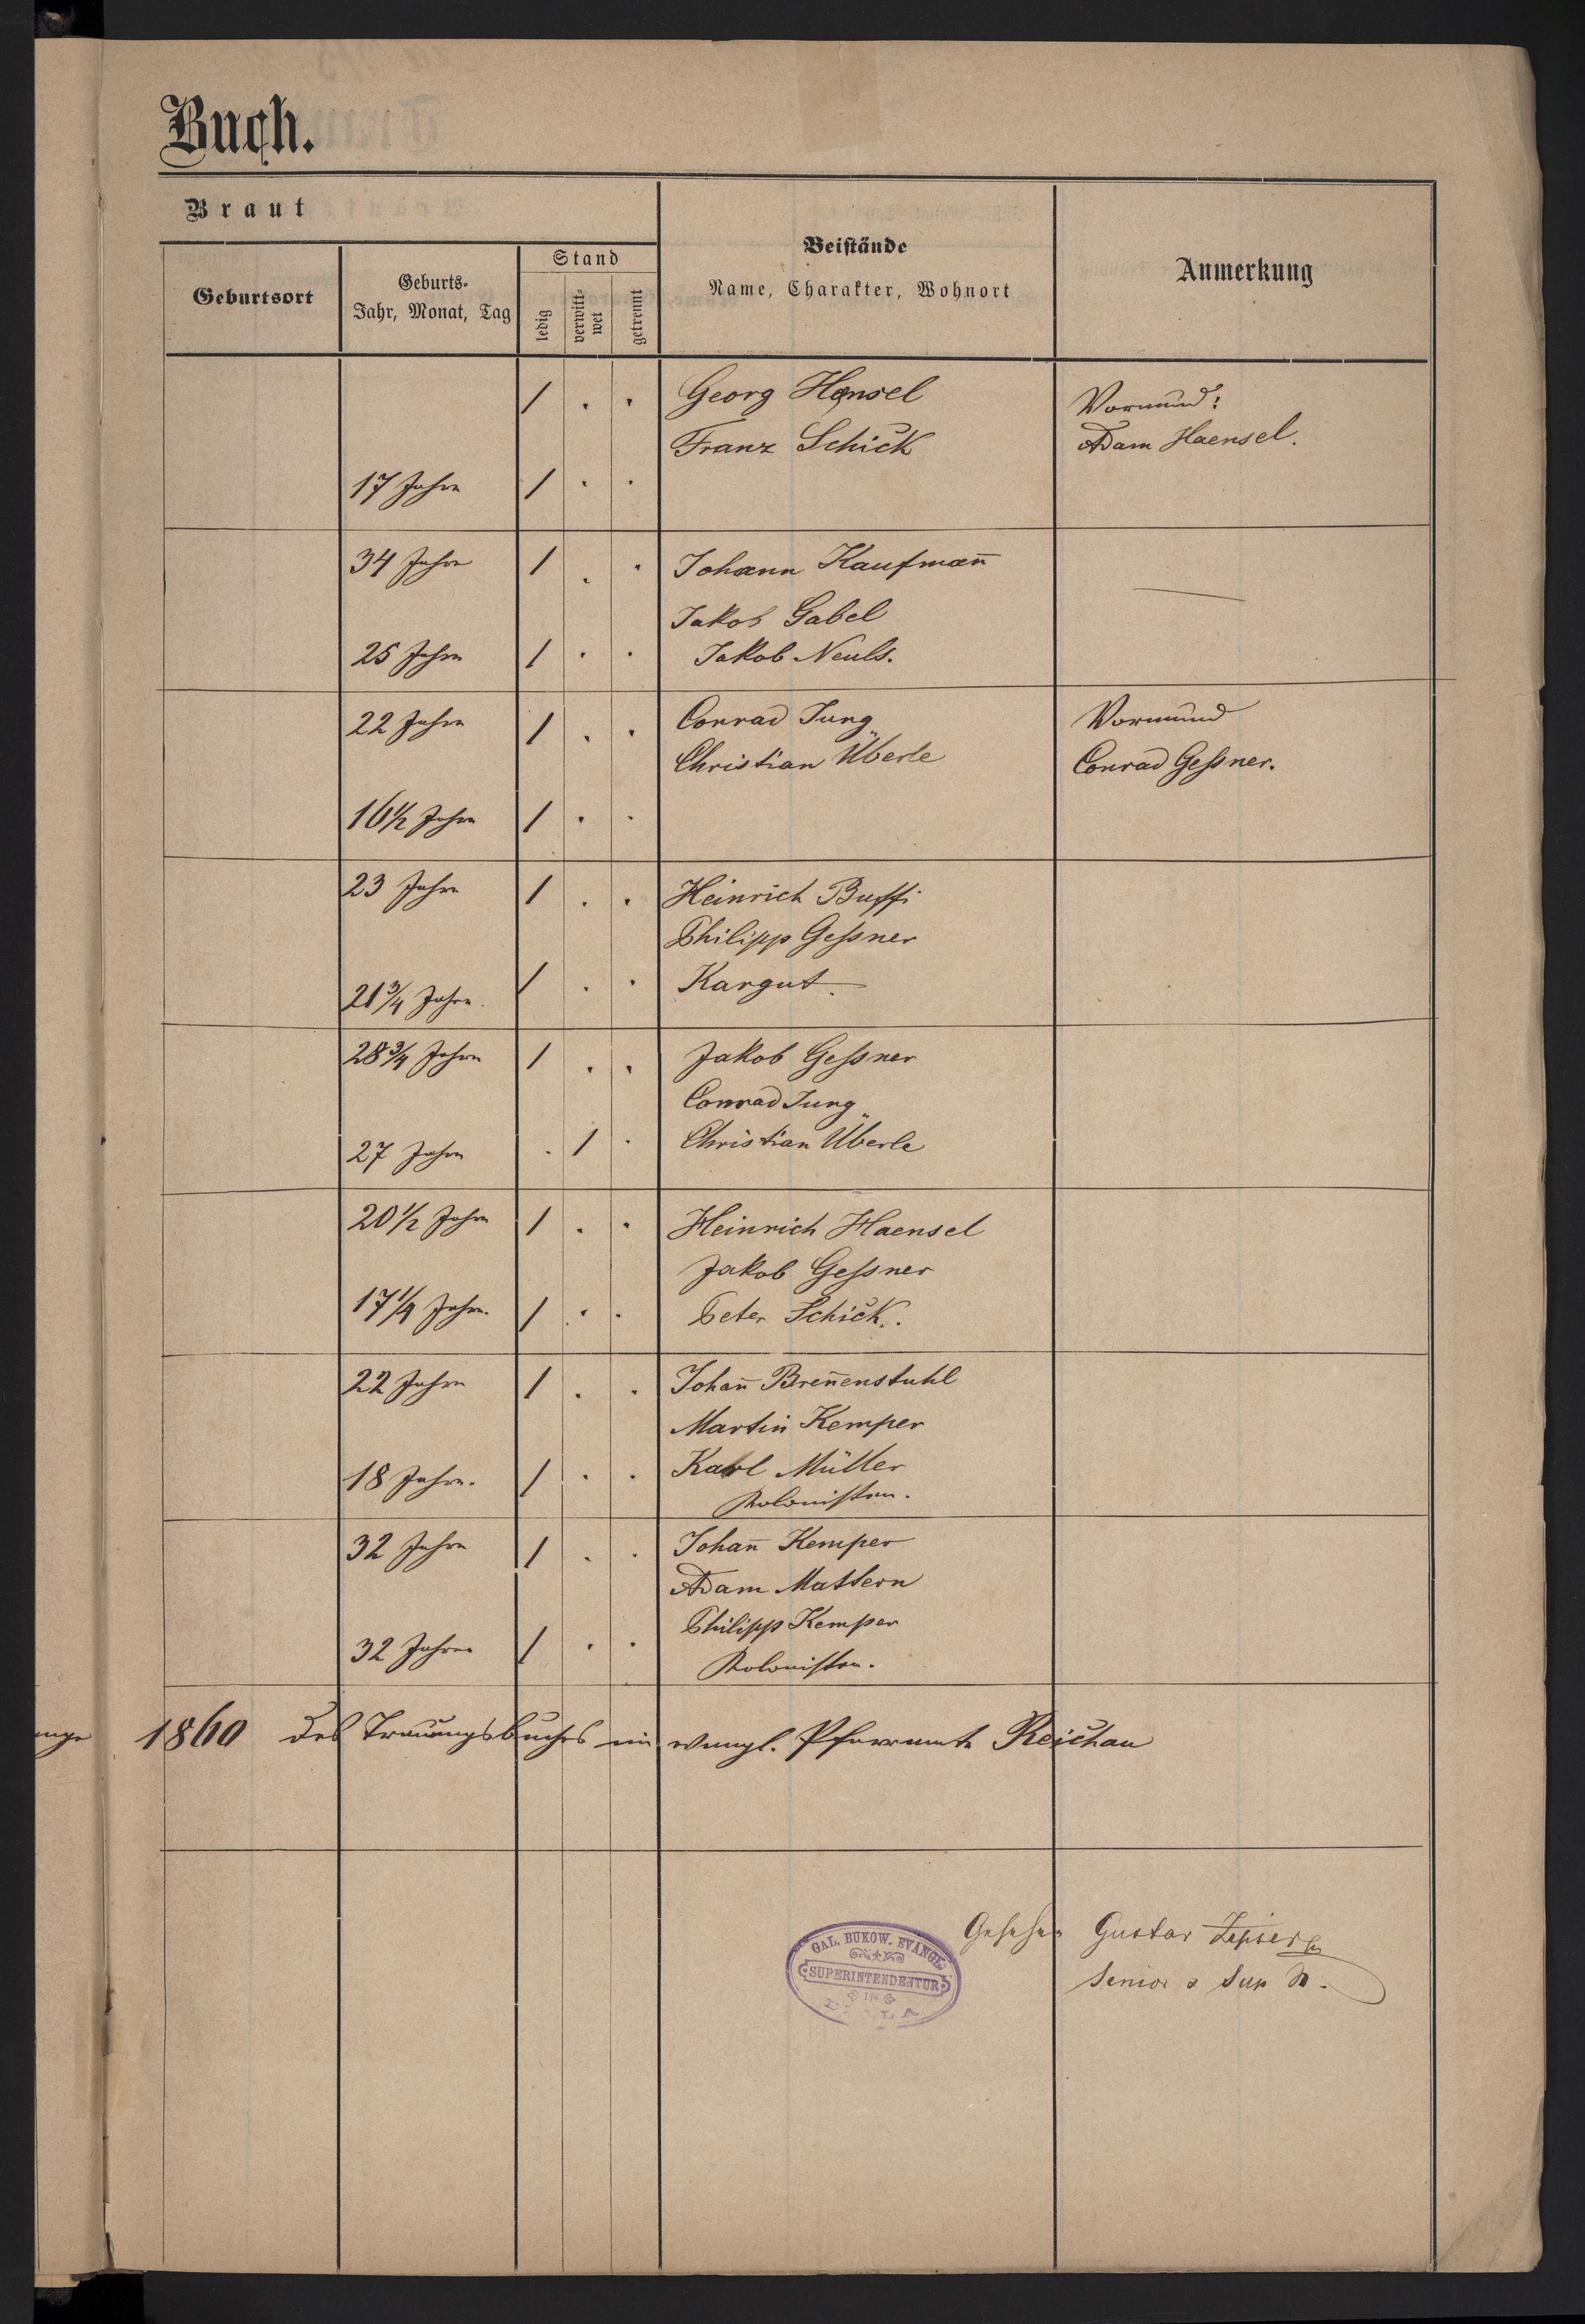 Buch.
Braut
Geburtsort
Geburts-
Jahr, Monat, Tag
Stand
ledig
verwitt-
wet
getrennt
Beistände
Name, Charakter, Wohnort
Anmerkung
1 . . Georg Hensel Vormund:
Franz Schick Adam Haensel.
17 Jahre 1 . .
34 Jahre 1 . . Johann Kaufman̅
Jakob Gabel
25 Jahre 1 . . Jakob Neuls.
22 Jahre 1 . . Conrad Jung Vormund
Christian Überle Conrad Geßner.
16½ Jahre 1 . .
23 Jahre 1 . . Heinrich Buffi
Philipp Geßner
21¾ Jahre. 1 . . Kargut.
28¾ Jahre 1 . . Jakob Geßner
Conrad Jung
27 Jahre . 1 . Christian Überle
20½ Jahre 1 . . Heinrich Haensel
Jakob Geßner
17¼ Jahre. 1 . . Peter Schick.
22 Jahre 1 . . Johan̅ Bren̅enstuhl
Martin Kemper
18 Jahre. 1 . . Karl Müller
Kolonisten.
32 Jahre 1 . . Johan̅ Kemper
Adam Mattern
Philipp Kemper
32 Jahre 1 . . Kolonisten.
1860 des Trauungsbuches im evangl. Pfarramte Reichau
Gesehen Gustav
Senior &
GAL. BUKOW. EVANGL.
SUPERINTENDENTUR
IN